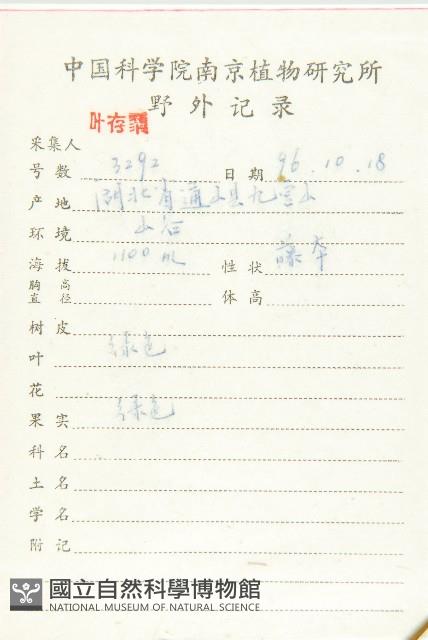 中国科学院南京植物研究所
野外记录
采集人 叶存粟
号数 3292 日期 96.10.18
产地 湖北省通山县九宫山
环境 山谷
海拔 1100 m 性状 藤本
胸高直径 体高
树皮
叶 绿色
花
果实 绿色
科名
土名
学名
附记
國立自然科學博物館
NATIONAL MUSEUM OF NATURAL SCIENCE